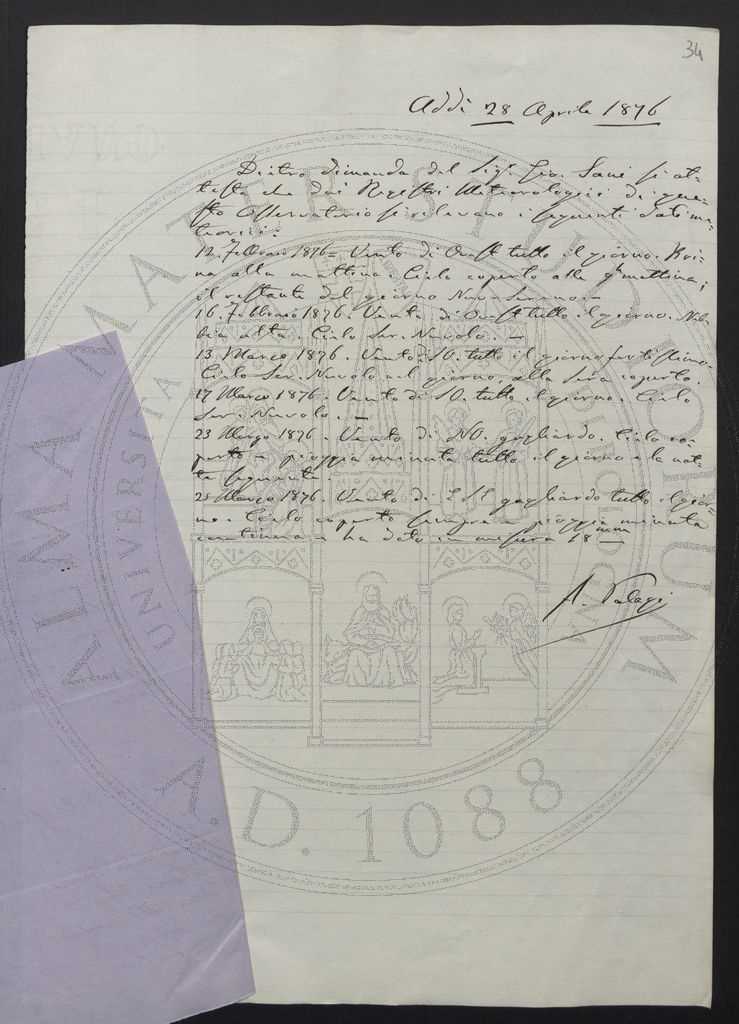 34
Addì 28 Aprile 1876
Dietro dimanda del Sigr. Gio. Sani si at-
testa che dai Registri Meteorologici di que-
sto Osservatorio si rilevano i seguenti dati me-
teorici:
12. Febbraio 1876 = Vento di Ovest tutto il giorno.
na alla mattina. Cielo coperto alla mattina;
il restante del giorno Nuv. Sereno. —
16. Febbraio 1876. Vento di Ovest tutto il giorno. Neb-
bia alta. Cielo Ser. Nuvolo. —
13. Marzo 1876. Vento SO. tutto il giorno fortissimo.
Cielo Ser. Nuvolo nel giorno, alla sera coperto.
17 Marzo 1876. Vento di SO. tutto il giorno. Cielo
Ser. Nuvolo. —
23 Marzo 1876. Vento di NO. gagliardo. Cielo co-
perto e pioggia minuta tutto il giorno e la not-
te seguente.
25 Marzo 1876. Vento di E SE gagliardo tutto il gior-
no. Cielo coperto sempre e pioggia minuta
continua e ha dato in misura 18 mm
A. Palagi
ALMA MATER STUDIORUM
UNIVERSITÀ
A.D. 1088